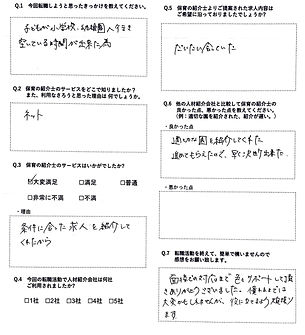 Q.1 今回転職しようと思ったきっかけを教えてください。
子どもが小学校、幼稚園へ行き
空いている時間が出来た為
Q.2 保育の紹介士のサービスをどこで知りましたか?
また、利用なさろうと思った理由は何でしょうか。
ネット
Q.3 保育の紹介士のサービスはいかがでしたか?
☑大変満足 □満足 □普通
□非常に不満 □不満
・理由
条件に合った求人を紹介して
くれたから
Q.4 今回の転職活動で人材紹介会社は何社
ご利用されましたか?
□1社 □2社 □3社 □4社 □5社
Q.5 保育の紹介士よりご提案された求人内容は
ご希望に沿っておりましたでしょうか?
だいたい合っていた
Q.6 他の人材紹介会社と比較して保育の紹介士の
良かった点、悪かった点を教えてください。
(例:適切な園を紹介された、紹介が遅い。)
・良かった点
適切な園を紹介してくれた
進めてもらえたので、早く決める事が出来た。
・悪かった点
Q.7 転職活動を終えて、簡単で構いませんので
感想をお願い致します。
対応まで色々サポートして頂き
ありがとうございました。慣れるまでは
大変かもしれませんが、役に立てるよう頑張り
ます